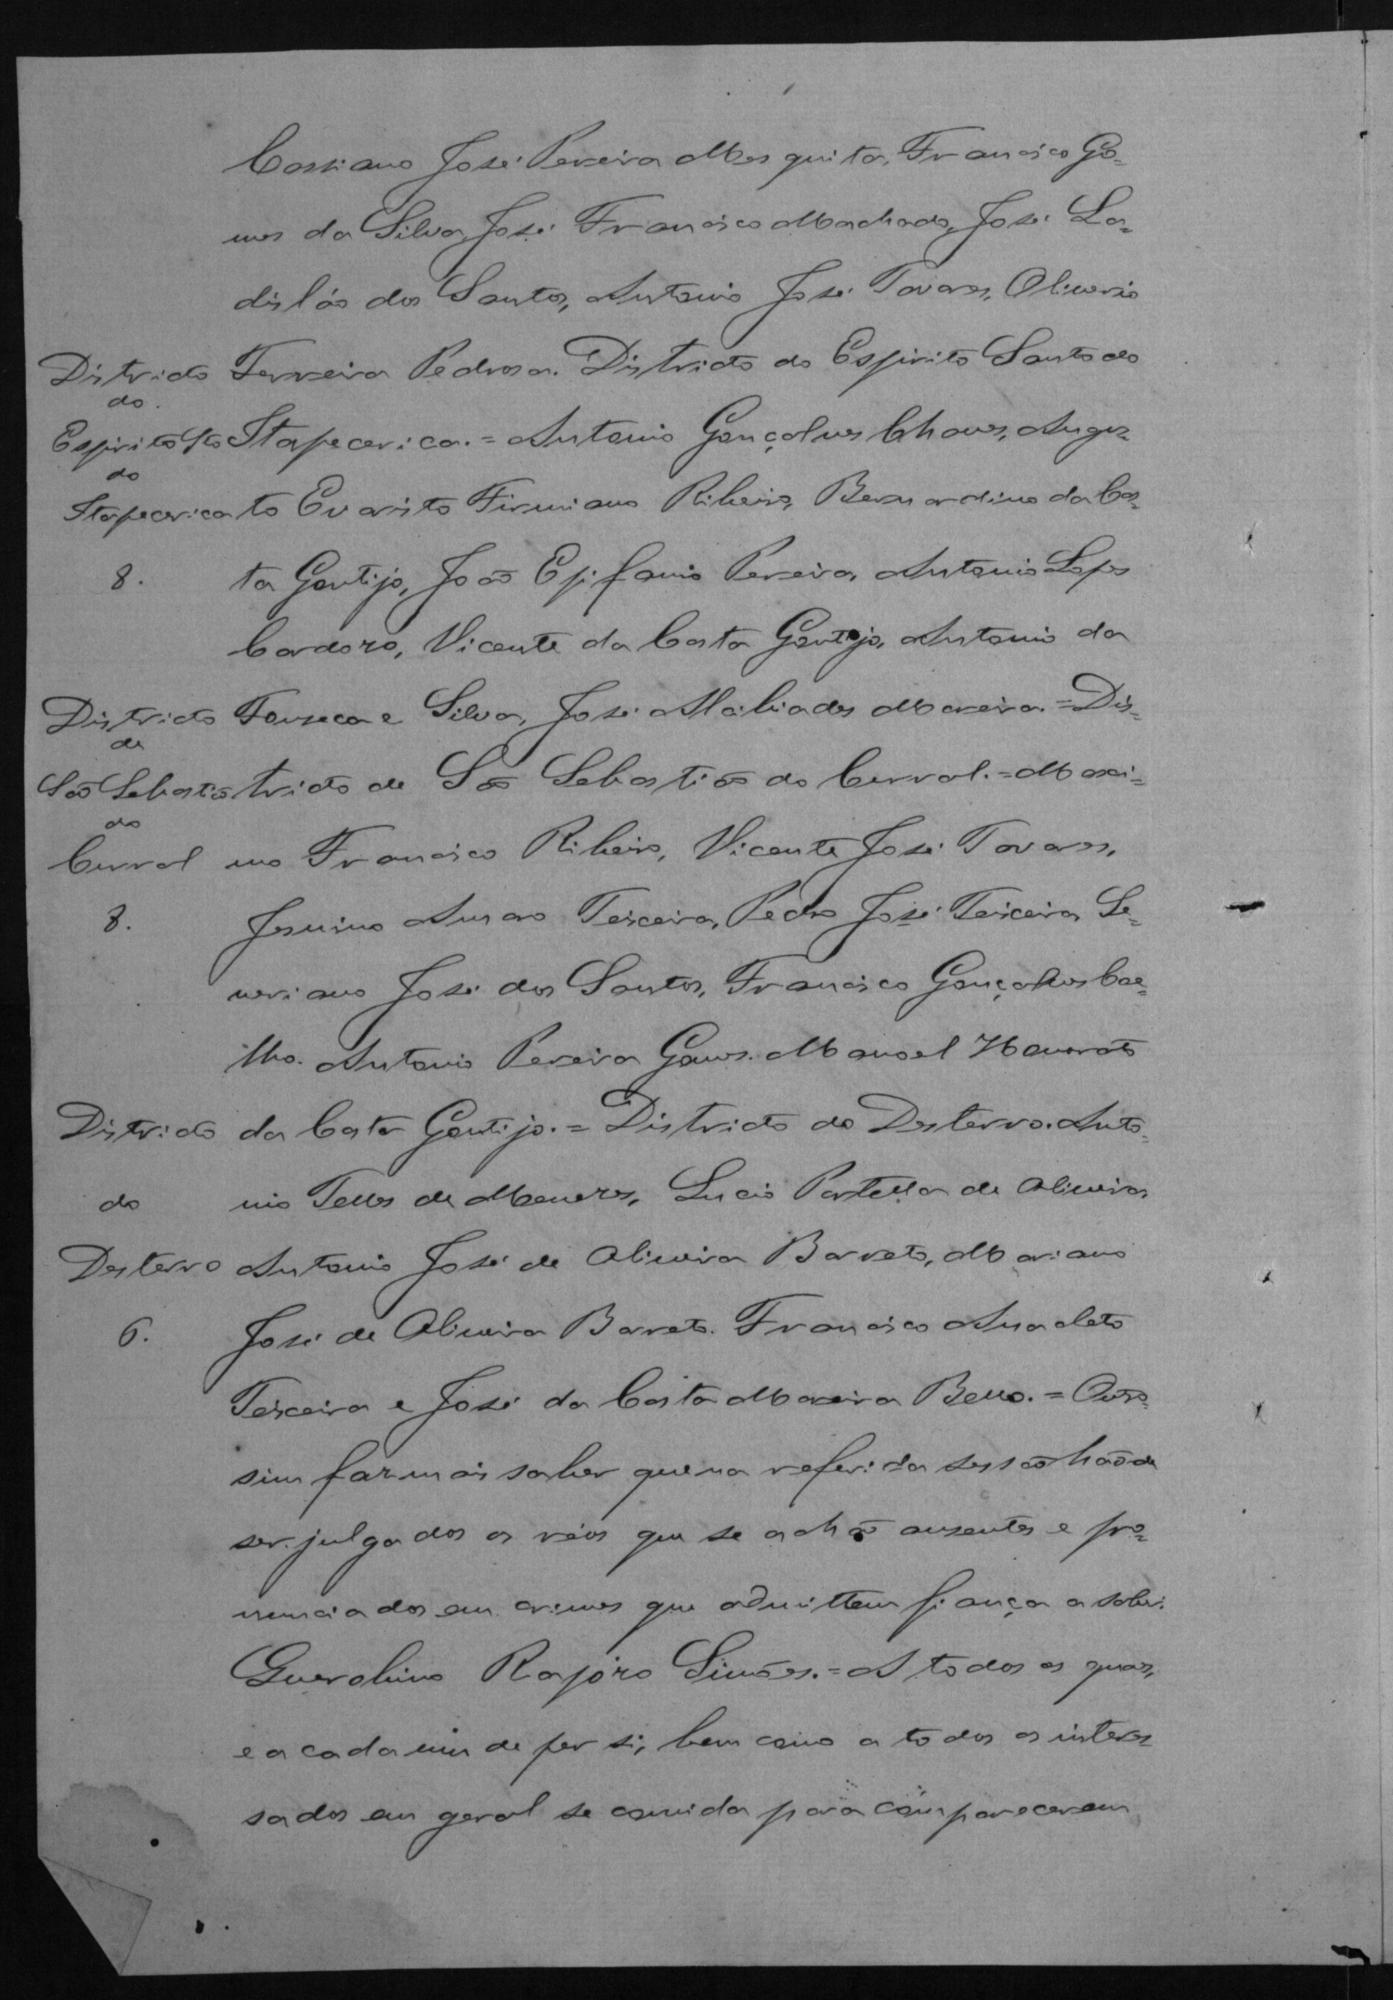 Cassiano José Pereira Mesquita, Francisco Go=
mes da Silva, José Francisco Machado, José La=
disláo dos Santos, Antonio José Tavares, Oliverio
Districto Ferreira Pedrosa. Districto do Espirito Santo do
do
Espirito Sto Itapecerica. = Antonio Gonçalves Chaves, Augus=
do
Itapecerica to Evaristo Firmiano Ribeiro, Bernardino da Cos=
8. ta Gontijo, João Epifanio Pereira, Antonio Lopes
Cardozo, Vicente da Costa Gontijo, Antonio da
Districto Fonseca e Silva, José Alcibiades Moreira. = Dis=
de
São Sebastião tricto de São Sebastião do Curral. = Maxi=
do
Curral mo Francisco Ribeiro, Vicente José Tavares,
8. Jesuino Anaro Teixeira, Pedro José Teixeira, Se=
veriano José dos Santos, Francisco Gonçalves Coe=
lho. Antonio Pereira Gomes. Manoel Honorato
Districto da Costa Gontijo. = Districto do Desterro. Anto=
do nio Telles de Menezes, Lucio Portella de Oliveira,
Desterro Antonio José de Oliveira Barreto, Mariano
6. José de Oliveira Barreto. Francisco Anacleto
Teixeira e José da Costa Moreira Bello. = Outro
sim faz mais saber que na referida sessão hão de
ser julgados os réos que se achão ausentes e pro=
nunciados em crimes que admittem fiança a saber:
Simões. = A todos os quaes,
e a cada um de per si, bem como a todos os interes
sados em geral se convida para comparecerem